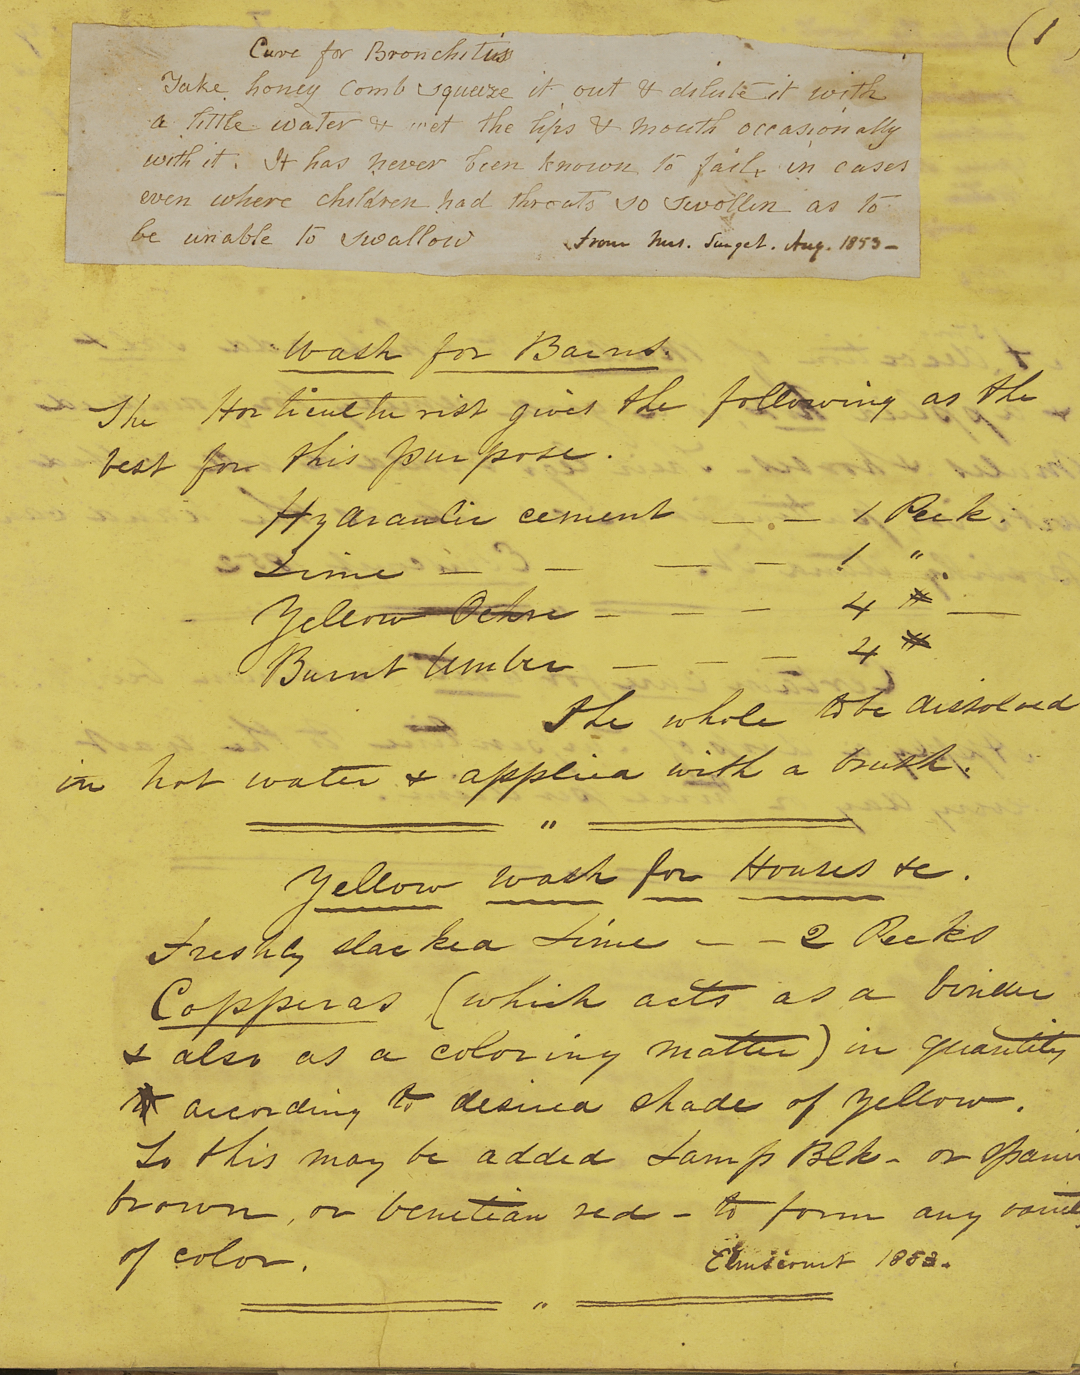 (1)
Cure for Bronchitis
Take honey comb squeeze it out & dilute it with
a little water & wet the lips & mouth occasionally
with it. It has never been known to fail, in cases
even where children had throats so swollen as to
be unable to swallow
from Mrs. Surget. Aug. 1853 -
Wash for Barns.
The Horticulturist gives the following as the
best for this purpose.
Hydraulic cement — — 1 Peck.
Lime — — — — 1 ".
Yellow Ochre — — — 4 # —
Burnt Umber — — — 4 #
The whole to be dissolved
in hot water & applied with a brush.
"
Yellow wash for Houses &c.
Freshly slacked Lime — — 2 Pecks
Copperas (which acts as a binder
& also as a coloring matter) in quantity
according to desired shade of yellow.
To this may be added Lamp Blk - or
brown, or venetian red - to form any
of color.
Elmscourt 1853.
"